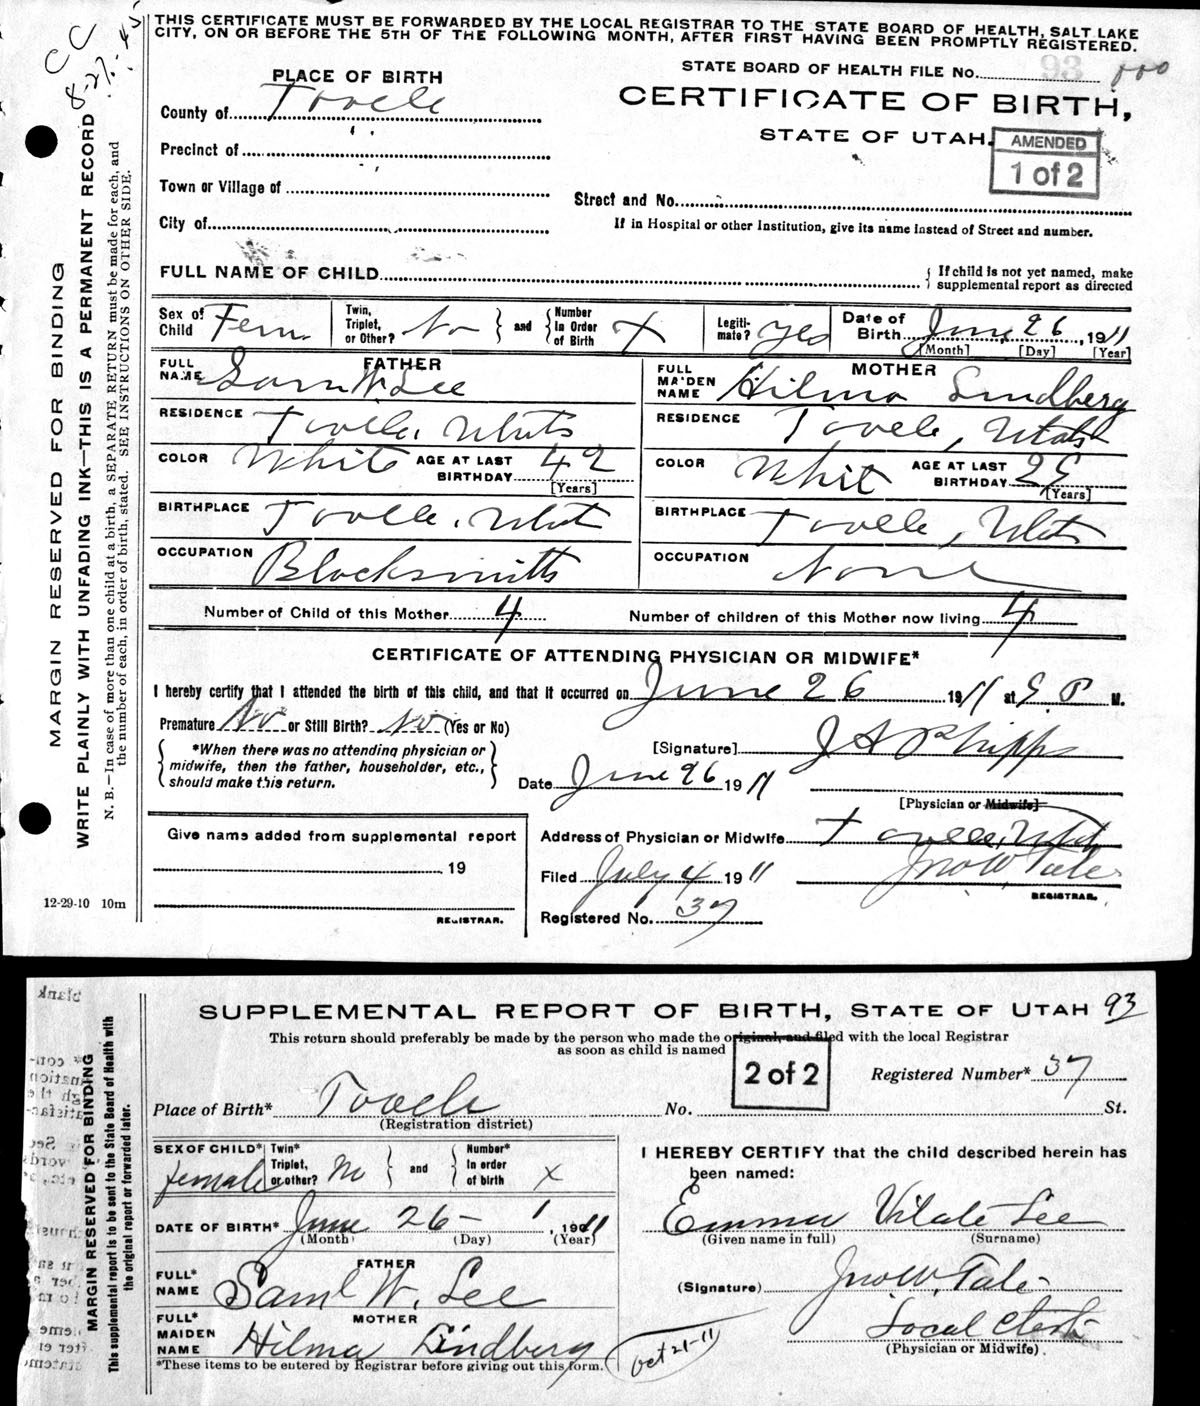 THIS CERTIFICATE MUST BE FORWARDED BY THE LOCAL REGISTRAR TO THE STATE BOARD OF HEALTH, SALT LAKE
CITY, ON OR BEFORE THE 5TH OF THE FOLLOWING MONTH, AFTER FIRST HAVING BEEN PROMPTLY REGISTERED.
CC
8-27-45
PLACE OF BIRTH
STATE BOARD OF HEALTH FILE No. 93
County of Tooele
CERTIFICATE OF BIRTH,
STATE OF UTAH.
AMENDED
1 of 2
Precinct of
Town or Village of
Street and No.
City of
If in Hospital or other Institution, give its name instead of Street and number.
FULL NAME OF CHILD
{ If child is not yet named, make
supplemental report as directed
Sex of Child Fem
Twin, Triplet, or Other? No } and { Number in Order of Birth X
Legitimate? Yes
Date of Birth June 26, 1911
[Month] [Day] [Year]
FATHER
FULL NAME Sam W. Lee
MOTHER
FULL MAIDEN NAME Hilma Lindberg
RESIDENCE Tooele, Utah
RESIDENCE Tooele, Utah
COLOR White AGE AT LAST BIRTHDAY 42 [Years]
COLOR White AGE AT LAST BIRTHDAY [Years]
BIRTHPLACE Tooele, Utah
BIRTHPLACE Tooele, Utah
OCCUPATION Blacksmith
OCCUPATION None
Number of Child of this Mother 4
Number of children of this Mother now living 4
CERTIFICATE OF ATTENDING PHYSICIAN OR MIDWIFE*
I hereby certify that I attended the birth of this child, and that it occurred on June 26 1911 at P. M.
Premature No or Still Birth? No (Yes or No)
{ *When there was no attending physician or
midwife, then the father, householder, etc.,
should make this return. }
[Signature] J A Phipps
Date June 26 1911
[Physician or Midwife]
Give name added from supplemental report
19
REGISTRAR.
Address of Physician or Midwife Tooele, Utah
Filed July 4 1911
Jno W. Tate
REGISTRAR.
Registered No. 37
12-29-10 10m
MARGIN RESERVED FOR BINDING
WRITE PLAINLY WITH UNFADING INK—THIS IS A PERMANENT RECORD
N. B.—In case of more than one child at a birth, a SEPARATE RETURN must be made for each, and
the number of each, in order of birth, stated. SEE INSTRUCTIONS ON OTHER SIDE.
SUPPLEMENTAL REPORT OF BIRTH, STATE OF UTAH 93
This return should preferably be made by the person who made the original, and filed with the local Registrar
as soon as child is named
2 of 2
Registered Number* 37
Place of Birth* Tooele No. St.
(Registration district)
SEX OF CHILD* female
Twin* Triplet, or other? No } and { Number* In order of birth X
I HEREBY CERTIFY that the child described herein has
been named:
DATE OF BIRTH* June 26 - 1, 1911
(Month) (Day) (Year)
Emma Vilate Lee
(Given name in full) (Surname)
FATHER
FULL* NAME Saml W. Lee
(Signature) Jno W. Tate
MOTHER
FULL* MAIDEN NAME Hilma Lindberg
Local Clerk
(Physician or Midwife).
*These items to be entered by Registrar before giving out this form.
Oct 21-11
MARGIN RESERVED FOR BINDING
This supplemental report is to be sent to the State Board of Health with
the original report or forwarded later.